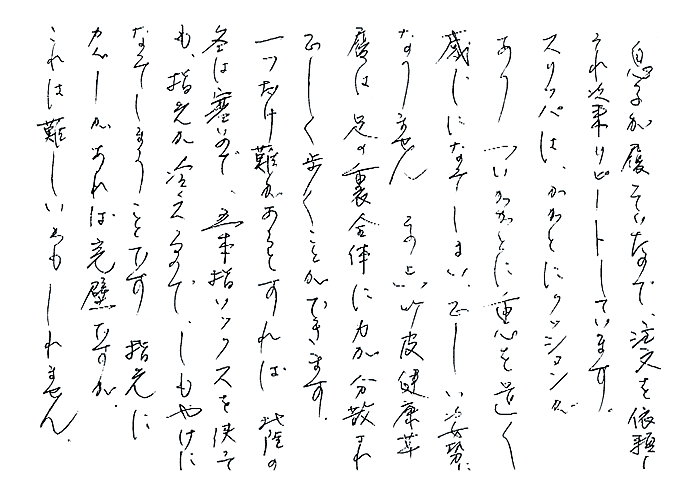 息子が履いていたので、注文を依頼し
それ以来リピートしています。
スリッパは、かかとにクッションが
あり ついかかとに重心を置く
感じになってしまい、正しい姿勢に
なりません その点、竹皮健康草
履は足の裏全体に力が分散され
正しく歩くことができます。
一つだけ難があるとすれば 北陸の
冬は寒いので、五本指ソックスを使って
も、指先が冷えるので、しもやけに
なってしまうことです 指先に
カバーがあれば完璧ですが、
これは難しいかもしれません。